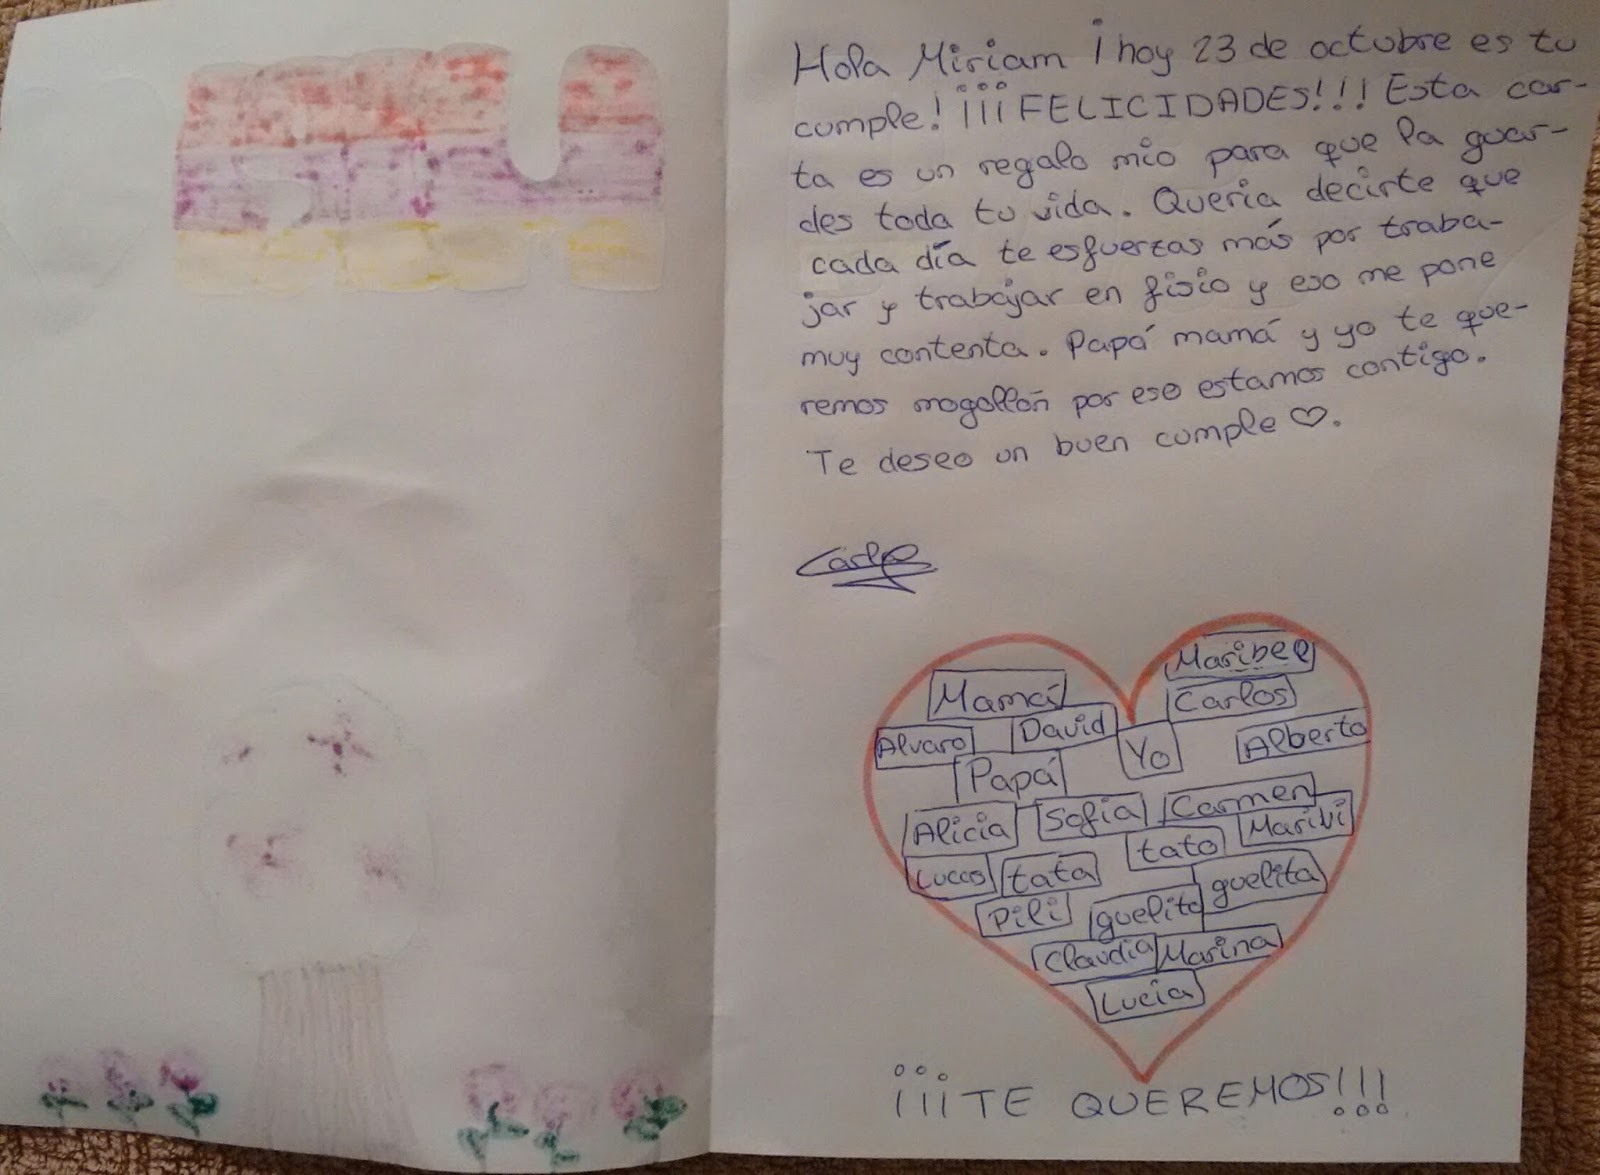 Hola Miriam ¡hoy 23 de octubre es tu
cumple! ¡¡¡FELICIDADES!!! Esta car-
ta es un regalo mio para que la guar-
des toda tu vida. Queria decirte que
cada día te esfuerzas más por traba-
jar y trabajar en fisio y eso me pone
muy contenta. Papá mamá y yo te que-
remos mogollón por eso estamos contigo.
Te deseo un buen cumple ♡.
Maribel
Mamá Carlos
Alvaro David Yo Alberto
Papá
Alicia Sofia Carmen
Lucas tata tato Marivi
Pili guelito guelita
Claudia Marina
Lucia
¡¡¡TE QUEREMOS!!!